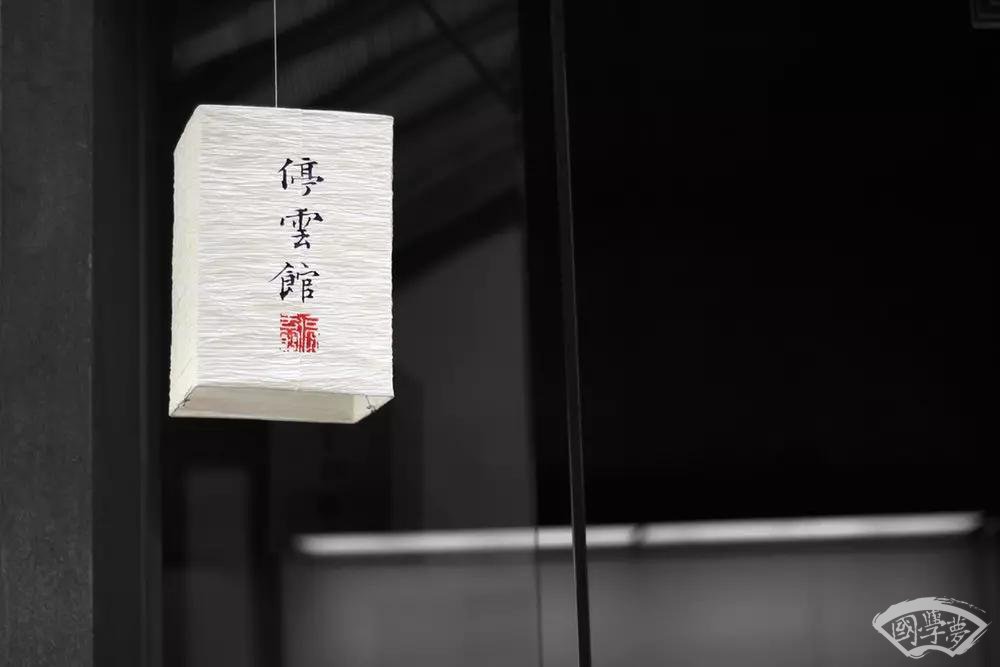 停雲館
國學夢